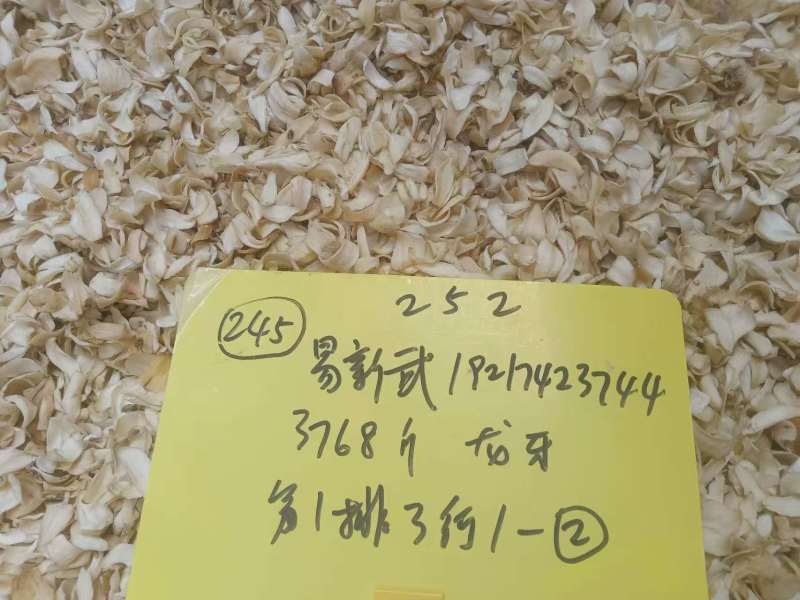 252
245
易新武 19217423744
3768斤 龙牙
第1排3行1-②